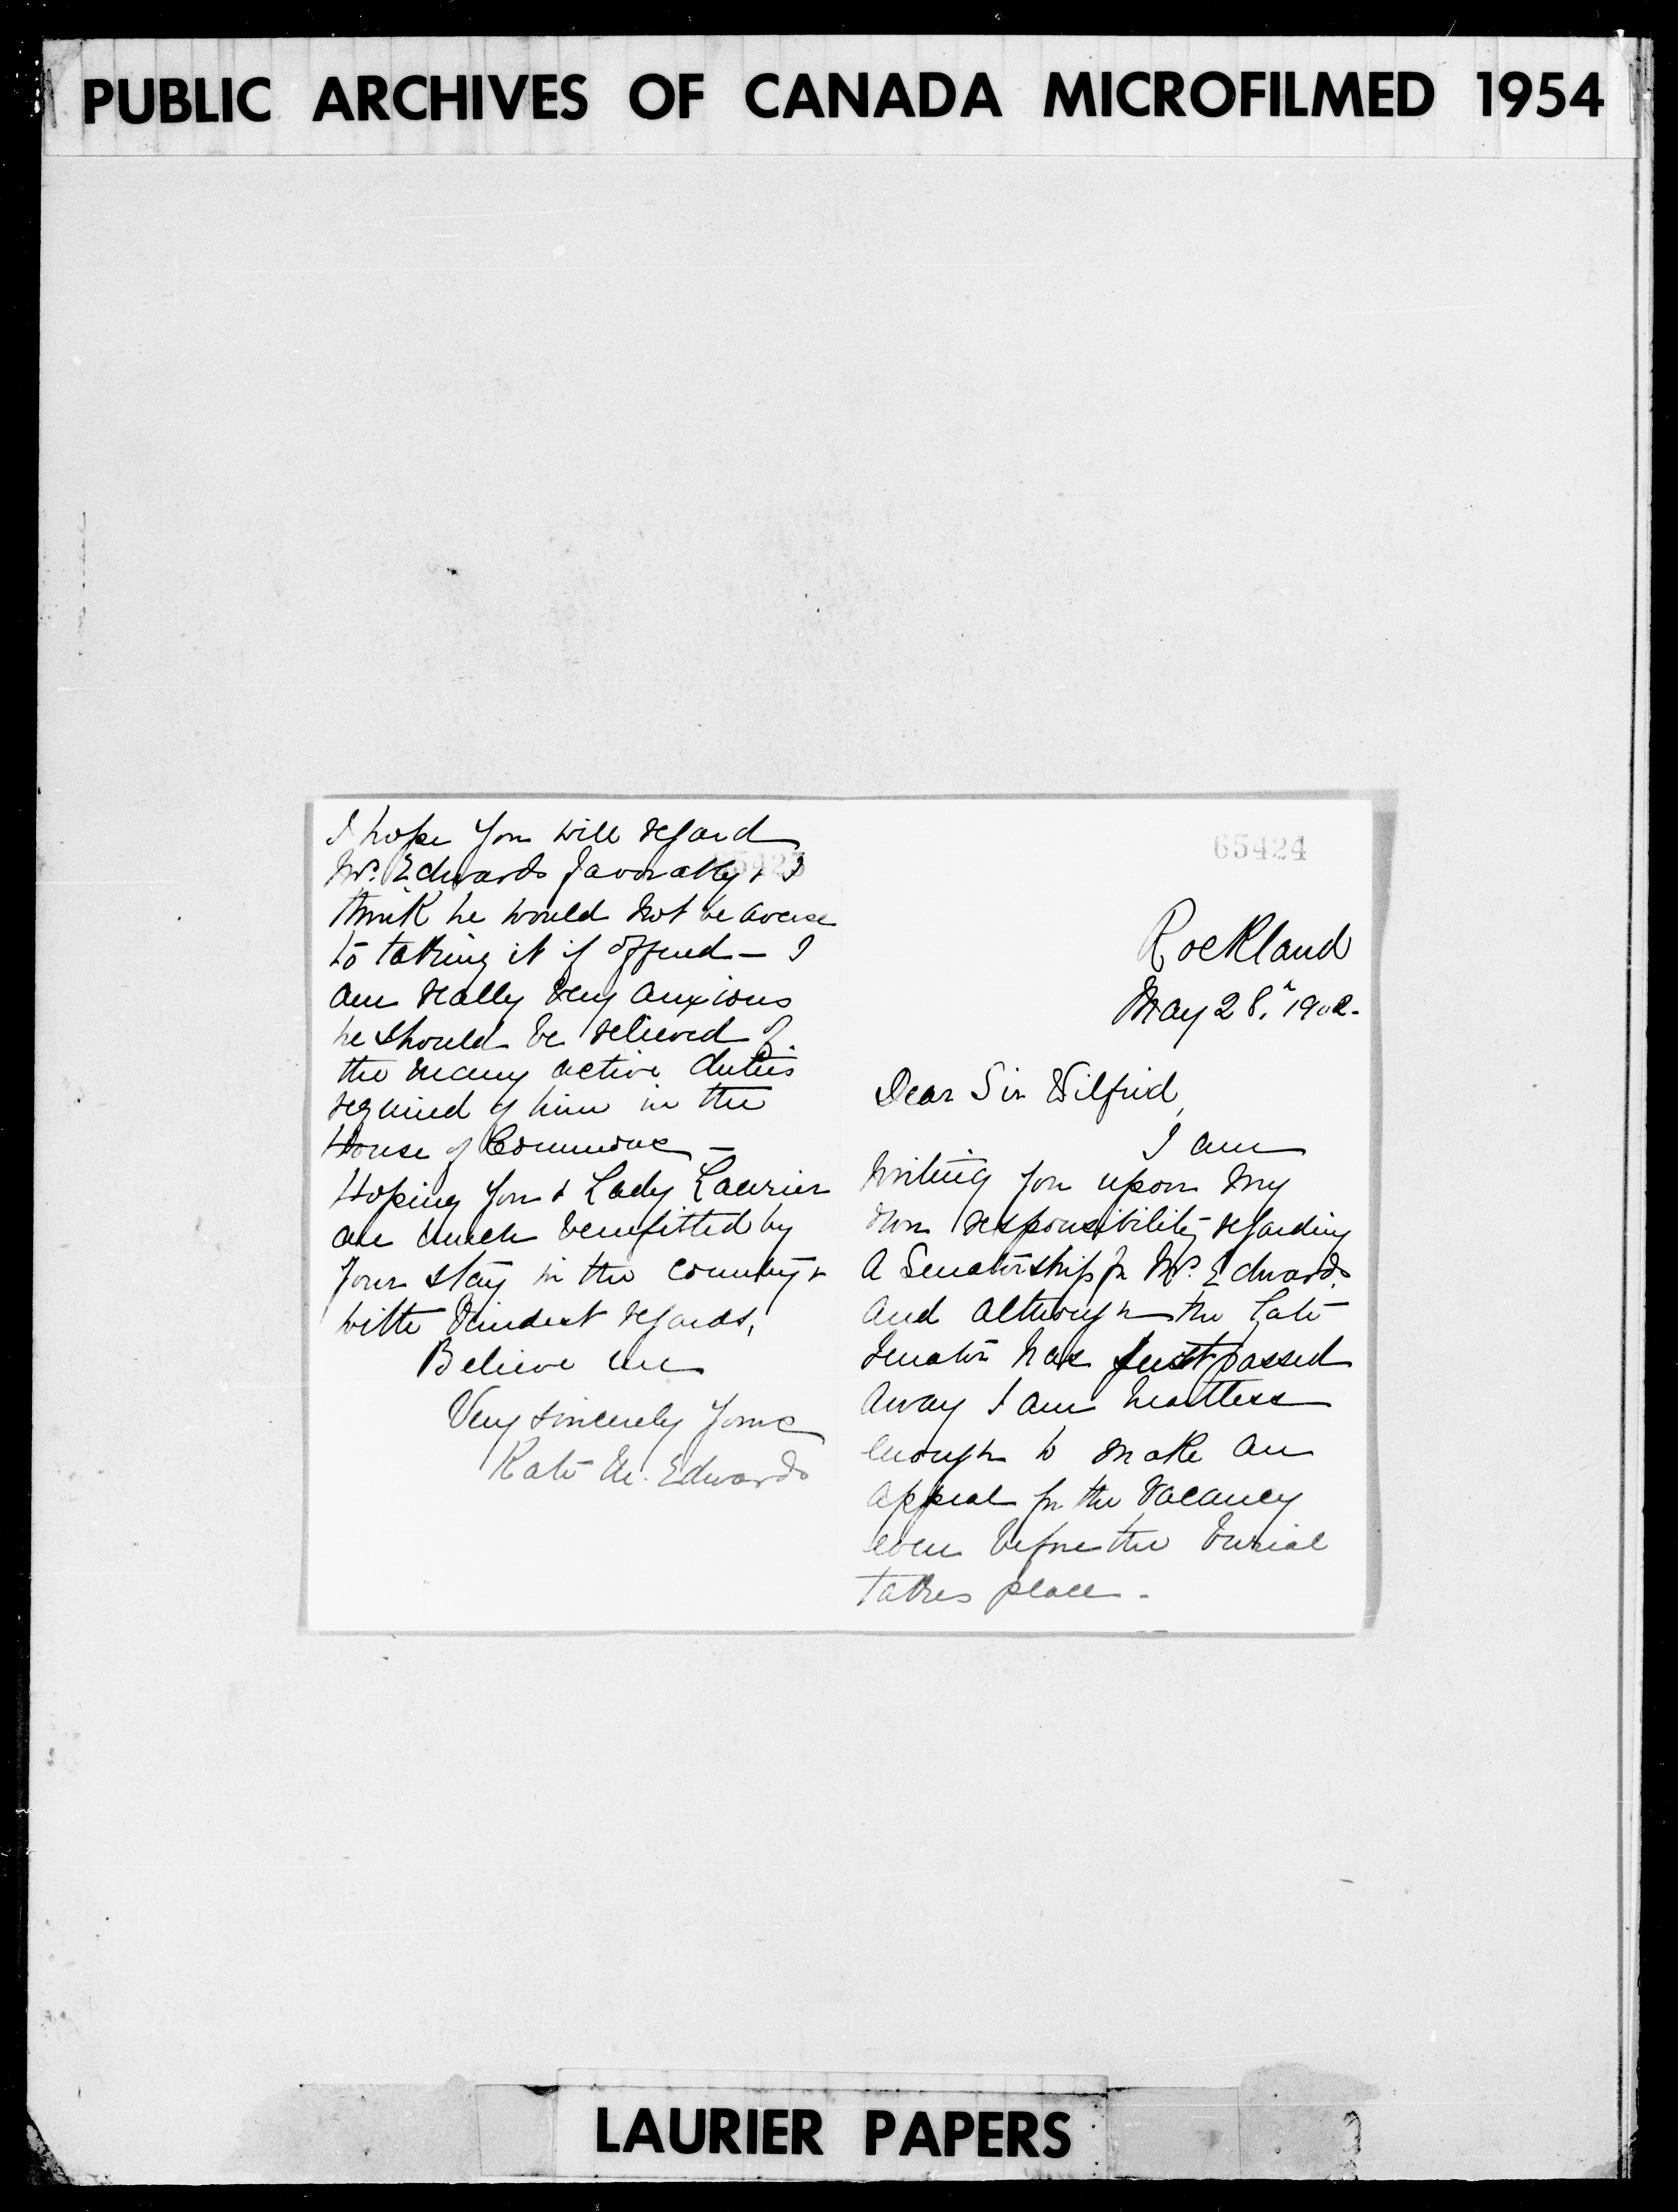 PUBLIC ARCHIVES OF CANADA MICROFILMED 1954
65424
Rockland
May 28. 1902.
Dear Sir Wilfrid,
I am
writing you upon my
own responsibility regarding
a Senatorship for Mr. Edwards.
And although the late
Senator has just passed
away I am heartless
enough to make an
appeal for the vacancy
even before the burial
takes place.
I hope you will regard
Mr. Edwards favorably & I
think he would not be averse
to taking it if offered — I
am really very anxious
he should be relieved of
the many active duties
required of him in the
House of Commons —
Hoping you & Lady Laurier
are much benefitted by
your stay in the country &
with kindest regards,
Believe me
Very sincerely yours
Kate M. Edwards
LAURIER PAPERS